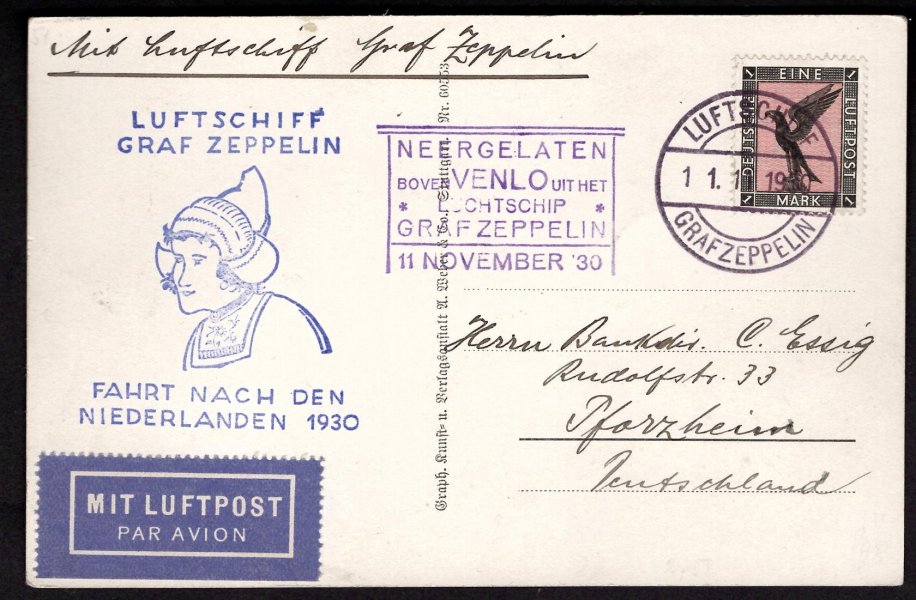 Mit Luftschiff Graf Zeppelin
LUFTSCHIFF
GRAF ZEPPELIN
FAHRT NACH DEN
NIEDERLANDEN 1930
MIT LUFTPOST
PAR AVION
Graph. Kunst= u. Verlagsanstalt A. Weber & Co., Stuttgart. Nr. 60553
NEERGELATEN
BOVEN VENLO UIT HET
* LUCHTSCHIP *
GRAF ZEPPELIN
11 NOVEMBER '30
LUFTSCHIFF
11.1 1930
GRAFZEPPELIN
1 EINE 1
DEUTSCHE
LUFTPOST
1 MARK 1
Herrn Bankdir. C. Essig
Rudolfstr. 33
Pforzheim
Deutschland